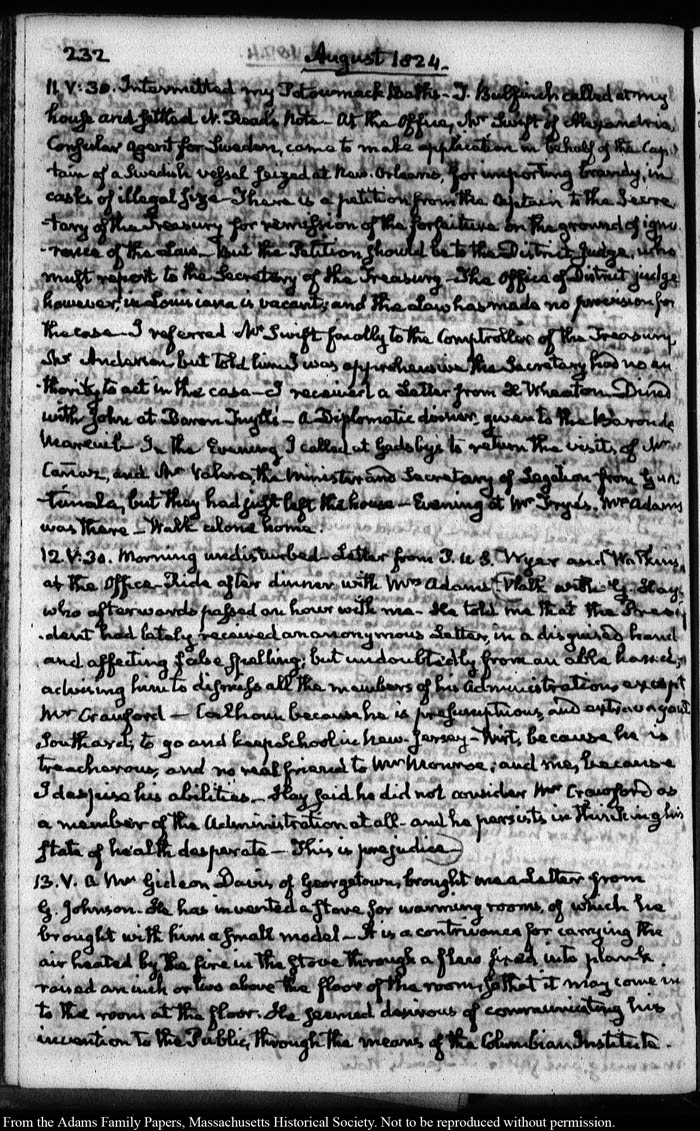 232
August 1824.
11. V:30. Intermitted my Potowmack Baths — T. Bulfinch called at my
house and settled N. Reads Note — At the Office, Mr Swift of Alexandria,
Consular Agent for Sweden, came to make application in behalf of the Cap-
tain of a Swedish vessel seized at New-Orleans, for importing brandy, in
casks of illegal size — There is a petition from the Captain to the Secre-
-tary of the Treasury for remission of the forfeiture on the ground of igno-
-rance of the Law — But the Petition should be to the District Judge, who
must report to the Secretary of the Treasury — The Office of District judge
however, in Louisiana is vacant; and the Law has made no provision for
the case — I referred Mr Swift finally to the Comptroller of the Treasury,
Mr Anderson, but told him I was apprehensive the Secretary had no au-
-thority to act in the case — I received a Letter from H Wheaton Dined
with John at Baron Tuyll's — a Diplomatic dinner, given to the Baron de
Mareuil. In the Evening I called at Gadsby's to return the visits of Mr
Cañaz, and Mr Valero, the Minister and Secretary of Legation from Gua-
-timala, but they had just left the house — Evening at Mr Frye's. Mrs Adams
was there — Walk alone home.
12. V:30. Morning undisturbed — Letter from P. U. S. Wyer and Watkins,
at the Office. Ride after dinner with Mrs Adams. Walk with G. Hay,
who afterwards passed an hour with me — He told me that the Presi-
-dent had lately received an anonymous Letter, in a disguised hand
and affecting false spelling; but undoubtedly from an able hand;
advising him to dismiss all the members of his Administration except
Mr Crawford — Calhoun because he is presumptuous, and extravagant
Southard, to go and keep School in New-Jersey — Wirt, because he is
treacherous, and no real friend to Mr Monroe; and me, because
I despise his abilities — Hay said he did not consider Mr Crawford as
a member of the Administration at all — and he persists in thinking his
state of health desperate — This is prejudice —
13. V. a Mr Gideon Davis of Georgetown, brought me a Letter from
G. Johnson. He has invented a stove for warming rooms, of which he
brought with him a small model — It is a contrivance for carrying the
air heated by the fire in the stove through a flue fixed into plank
raised an inch or two above the floor of the room, so that it may come in
to the room at the floor. He seemed desirous of communicating his
invention to the Public, through the means of the Columbian Institute.
From the Adams Family Papers, Massachusetts Historical Society. Not to be reproduced without permission.